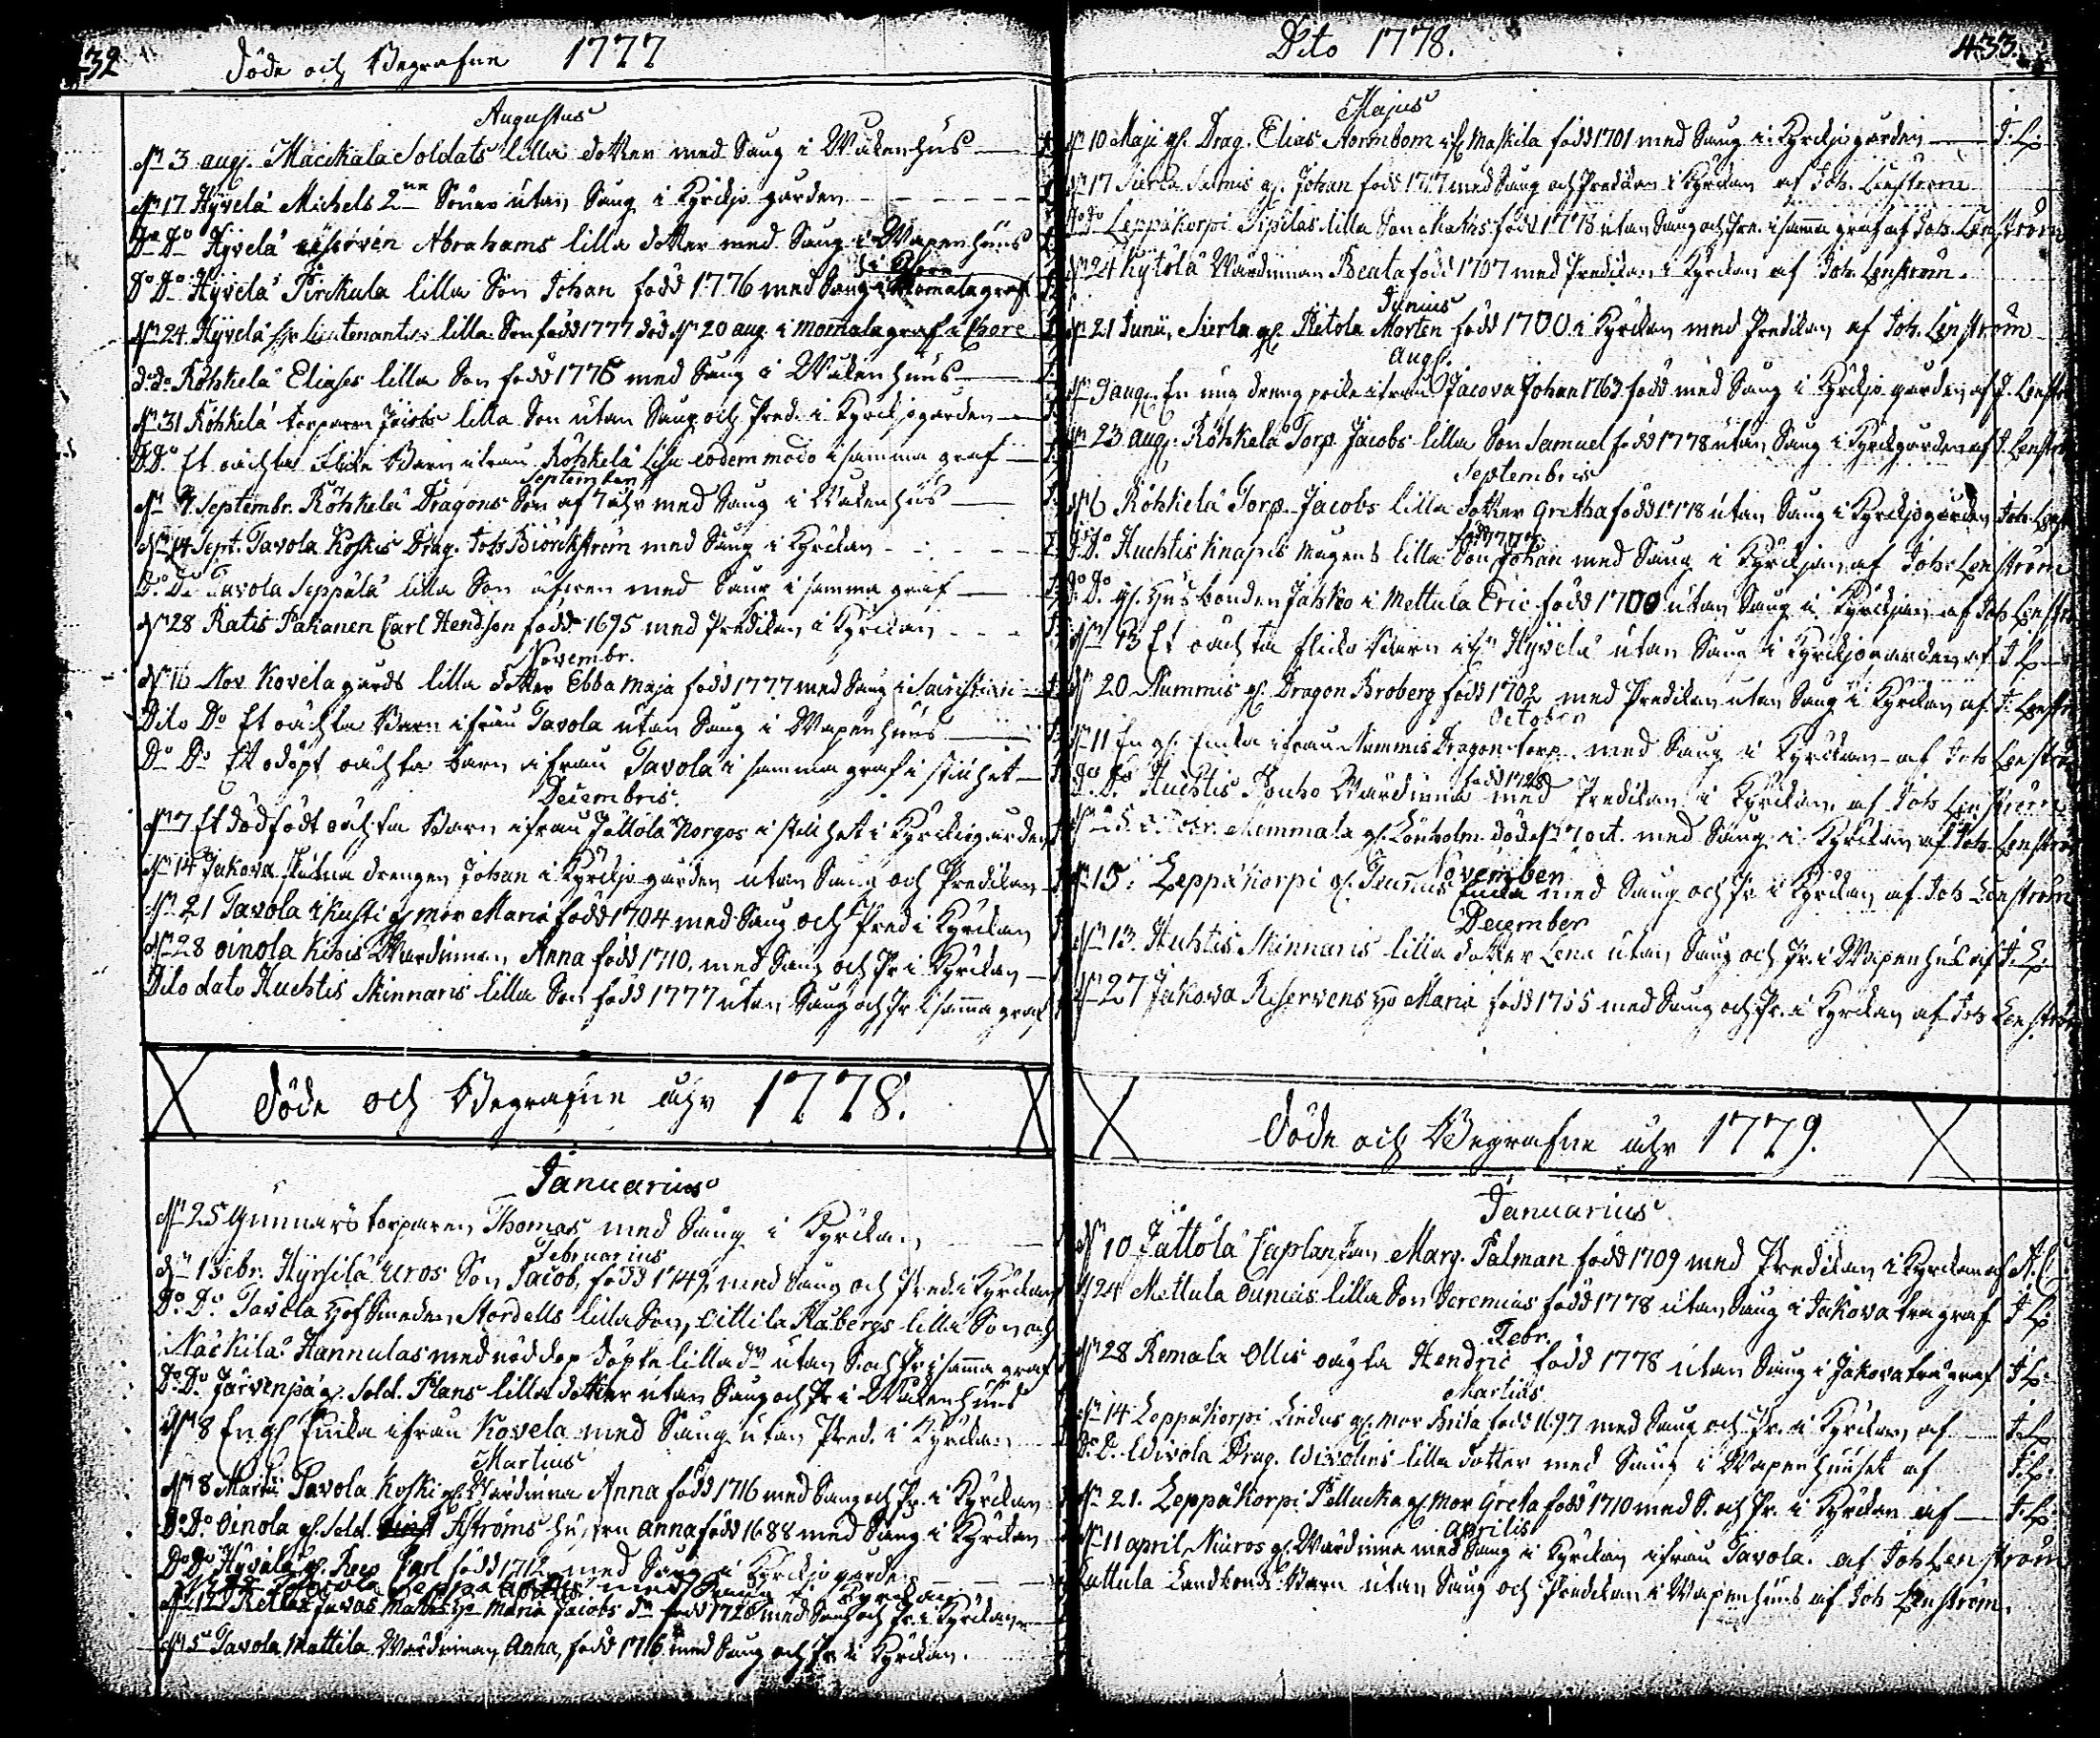 432
Döde och Begrafne 1777
Augustus
d. 3 aug. Mäckälä Soldats lilla dotter med Sang i Wäkenhus
d. 17 Hyvelä Michels 2ne Söner utan Sang i Kyrckjogården
Do Do Hyvelä Abrahams lilla dotter med Sang i Wapenhuus
Do Do Hyvelä Pirckula lilla Son Johan född 1776 med Sang i Momala graf i Chore
d. 24 Hyvelä Hr Lieutenantens lilla Son född 1777 död d. 20 aug. i Momala graf i Chore
d:do Röhkelä Eliases lilla Son född 1776 med Sang i Wäkenhuus
d. 31 Röhkelä torparen Jacobs lilla Son utan Sang och Pred. i Kyrckjogården
D:Do Et oächta flicke Barn ifrån Röhkelä Lisa eodem modo i samma graf
September
d. 7 Septembr. Röhkelä Dragons Son af 7 åhr med Sang i Wäkenhus
d. 14 Sept. Tavola Koskis Drag. Joh. Biörckström med Sang i Kyrckan
Do. Do Tavola Seppälä lilla Son äfwen med Sang i samma graf
d. 28 Ratis Pakanen Carl Hendson född 1695 med Predikan i Kyrckan
Novembr.
d. 16 Nov Kovela gårds lilla dotter Ebba Maja född 1777 med Sang i Sacristian
Dito Do Et oächta Barn ifrån Tavola utan Sang i Wapenhuus
Do Do Ett odöpt oächta barn ifrån Tavola i samma graf i stillhet
Decembris.
d. 7 Et dödfödt oächta Barn ifrån Jättölä Norgos i stillhet i Kyrckiogården
d. 14 Jakova drengen Johan i Kyrckjogården utan Sang och Predikan
d. 21 Tavola Kusti gl. mor Maria född 1704 med Sang och Pred i Kyrckan
d. 28 Oinola Kihis Wärdinnan Anna född 1710. med Sang och Pr i Kyrckan
Dito dato Huchtis Skinnaris lilla Son född 1777 utan Sang och Pr i samma graf
Döde och Begrafne åhr 1778.
Januarius
d. 25 Gunnars torparen Thomas med Sang i Kyrckan
Februarius
d. 1 Febr. Hyrsilä Uros Son Jacob, född 1749, med Sang och Pred. i Kyrckan
Do. Do. Tavola Hofsmeden Nordells lilla Son, Cittila Råbergs lilla Son och
Näckilä Hannulas med nöddop döpte lilla dr utan S. och Pr i samma graf
Do. Do. Järvenpä gl. Sold. Plans lilla dotter utan Sang och Pr i Wäkenhuus
d. 8 En gl. Enka ifrån Kovela med Sang utan Pred. i Kyrckan
Martius
d. 8 Martii Pavola Koski gl. Wärdinna Anna född 1716 med Sang och Pr. i Kyrckan
Do. Do. Oinola gl. Sold. Åströms hustru Anna född 1688 med Sang i Kyrckan
Do Do Carl född 1712 med Sang i Kyrckjogården
Seppä med Sang i Kyrckan
d. 12 Javas Matts Ho Maria Jacobs dr född 1728 med Sang och Pr. i Kyrckan
d. 15 Tavola Mattila Wärdinnan Anna, född 1716 med Sang och Pr i Kyrckan.
Dito 1778.
433.
Majus
d. 10 Maji gl. Drag. Elias Normbom ifr. Maskila född 1701 med Sang i Kyrckjogården J. L.
d. 17 Sierla Salmis gl. Johan född 1717 med Sang och Predikan i Kyrckan af Joh. Lenström
Do Do Leppäkorpi Sipilas lilla Son Mathis född 1778 utan Sang och Pre. i samma graf af Joh. Lenström
d. 24 Kytölä Wärdinnan Beata född 1707 med Predikan i Kyrckan af Joh. Lenström.
Junius
d. 21 Junii, Sierla gl. Pietola Morten född 1700 i Kyrckan med Predikan af Joh. Lenström
Aug.
d. 9 aug. En ung dreng ifrån Jacova Johan 1763 född med Sang i Kyrckjogården af J. Lenstr
d. 23 aug. Röhkelä Torp. Jacobs lilla Son Samuel född 1778 utan Sang i Kyrckgården af J Lenstr
Septembris
d. 6 Röhkelä Torp. Jacobs lilla dotter Gretha född 1778 utan Sang i Kyrckjogården Joh. Lenst
D:Do Huchtis Knapis Magens lilla Son Johan född 1777 med Sang i Kyrckjan af Joh. Lenström
Do Do gl. Husbonden Jahko i Mettula Eric född 1700 utan Sang i Kyrckjan af Joh Lenstr
d. 13 Et oächta flicko Barn ifr. Hyvelä utan Sang i Kyrckjogården af J. L
d. 20 Nummis gl. Dragon Broberg född 1702 med Predikan utan Sang i Kyrckan af J. Lenstr
October
d. 11 En gl. Enka ifrån Nummis Dragon torp. med Sang i Kyrckan af Joh Lenström
Do Do Huchtis Rouho Wärdinna född 1728 med Predikan i Kyrckan af Joh Lenström
d. 25 Octobr. Memmala gl. Lönholm död d. 17 oct. med Sang i Kyrckan af Joh. Lenström
November
d. 15. Leppäkorpi gl. Enka med Sang och Pr i Kyrckan af Joh Lenström
December
d. 13. Huhtis Skinnaris lilla dotter Lena utan Sang och Pr. i Wapenhus af J. L.
d. 27 Jakova Reservens Ho Maria född 1755 med Sang och Pr. i Kyrckan af Joh Lenström
Döde och Begrafne åhr 1779.
Januarius
d. 10 Jättölä Caplanskan Marg. Palman född 1709 med Predikan i Kyrckan af
d. 24 Mettula Ounicis lilla Son Jeremias född 1778 utan Sang i Jakova tragraf J L
Febr.
d. 28 Remala Ollis oägta Hendric född 1778 utan Sang i Jakova tragraf J L.
Martius
d. 14 Leppäkorpi Lindus gl. mor Brita född 1697 med Sang och Pr. i Kyrckan af J. L
Do. D. Wivola Drag. Wivolins lilla dotter med Sang i Wapenhuuset af J. L.
d. 21. Leppäkorpi Pellucka gl. mor Greta född 1710 med S. och Pr. i Kyrckan af J. L.
Aprilis
d. 11 april Niuros gl. Wärdinna med Sang i Kyrckan ifrån Tavola. af Joh Lenström
Lattula Landbonds Barn utan Sang och Predikan i Wapenhuus af Joh Lenström.